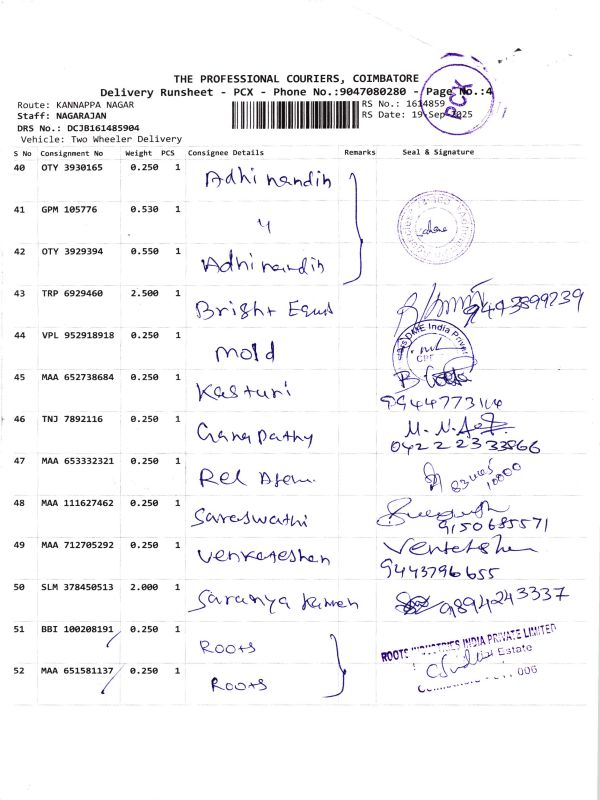 THE PROFESSIONAL COURIERS, COIMBATORE
Delivery Runsheet - PCX - Phone No.:9047080280 - Page No.:4
PCX
Route: KANNAPPA NAGAR
RS No.: 1614859
Staff: NAGARAJAN
RS Date: 19-Sep-2025
DRS No.: DCJB161485904
Vehicle: Two Wheeler Delivery
S No Consignment No Weight PCS Consignee Details Remarks Seal & Signature
40 OTY 3930165 0.250 1 Adhinandin
41 GPM 105776 0.530 1 "
42 OTY 3929394 0.550 1 Adhinandin
43 TRP 6929460 2.500 1 Bright 9443899239
44 VPL 952918918 0.250 1 mold DME India Priva
45 MAA 652738684 0.250 1 Kasturi
9944773144
46 TNJ 7892116 0.250 1 Ganapathy
0422 2333866
47 MAA 653332321 0.250 1 Rel
48 MAA 111627462 0.250 1 Saraswathi
9150685571
49 MAA 712705292 0.250 1 Venkateshan
9443796655
50 SLM 378450513 2.000 1 Saranya Kumen 9894243337
51 BBI 100208191 0.250 1 Roots
ROOTS INDUSTRIES INDIA PRIVATE LIMITED
Estate
52 MAA 651581137 0.250 1 Roots
006